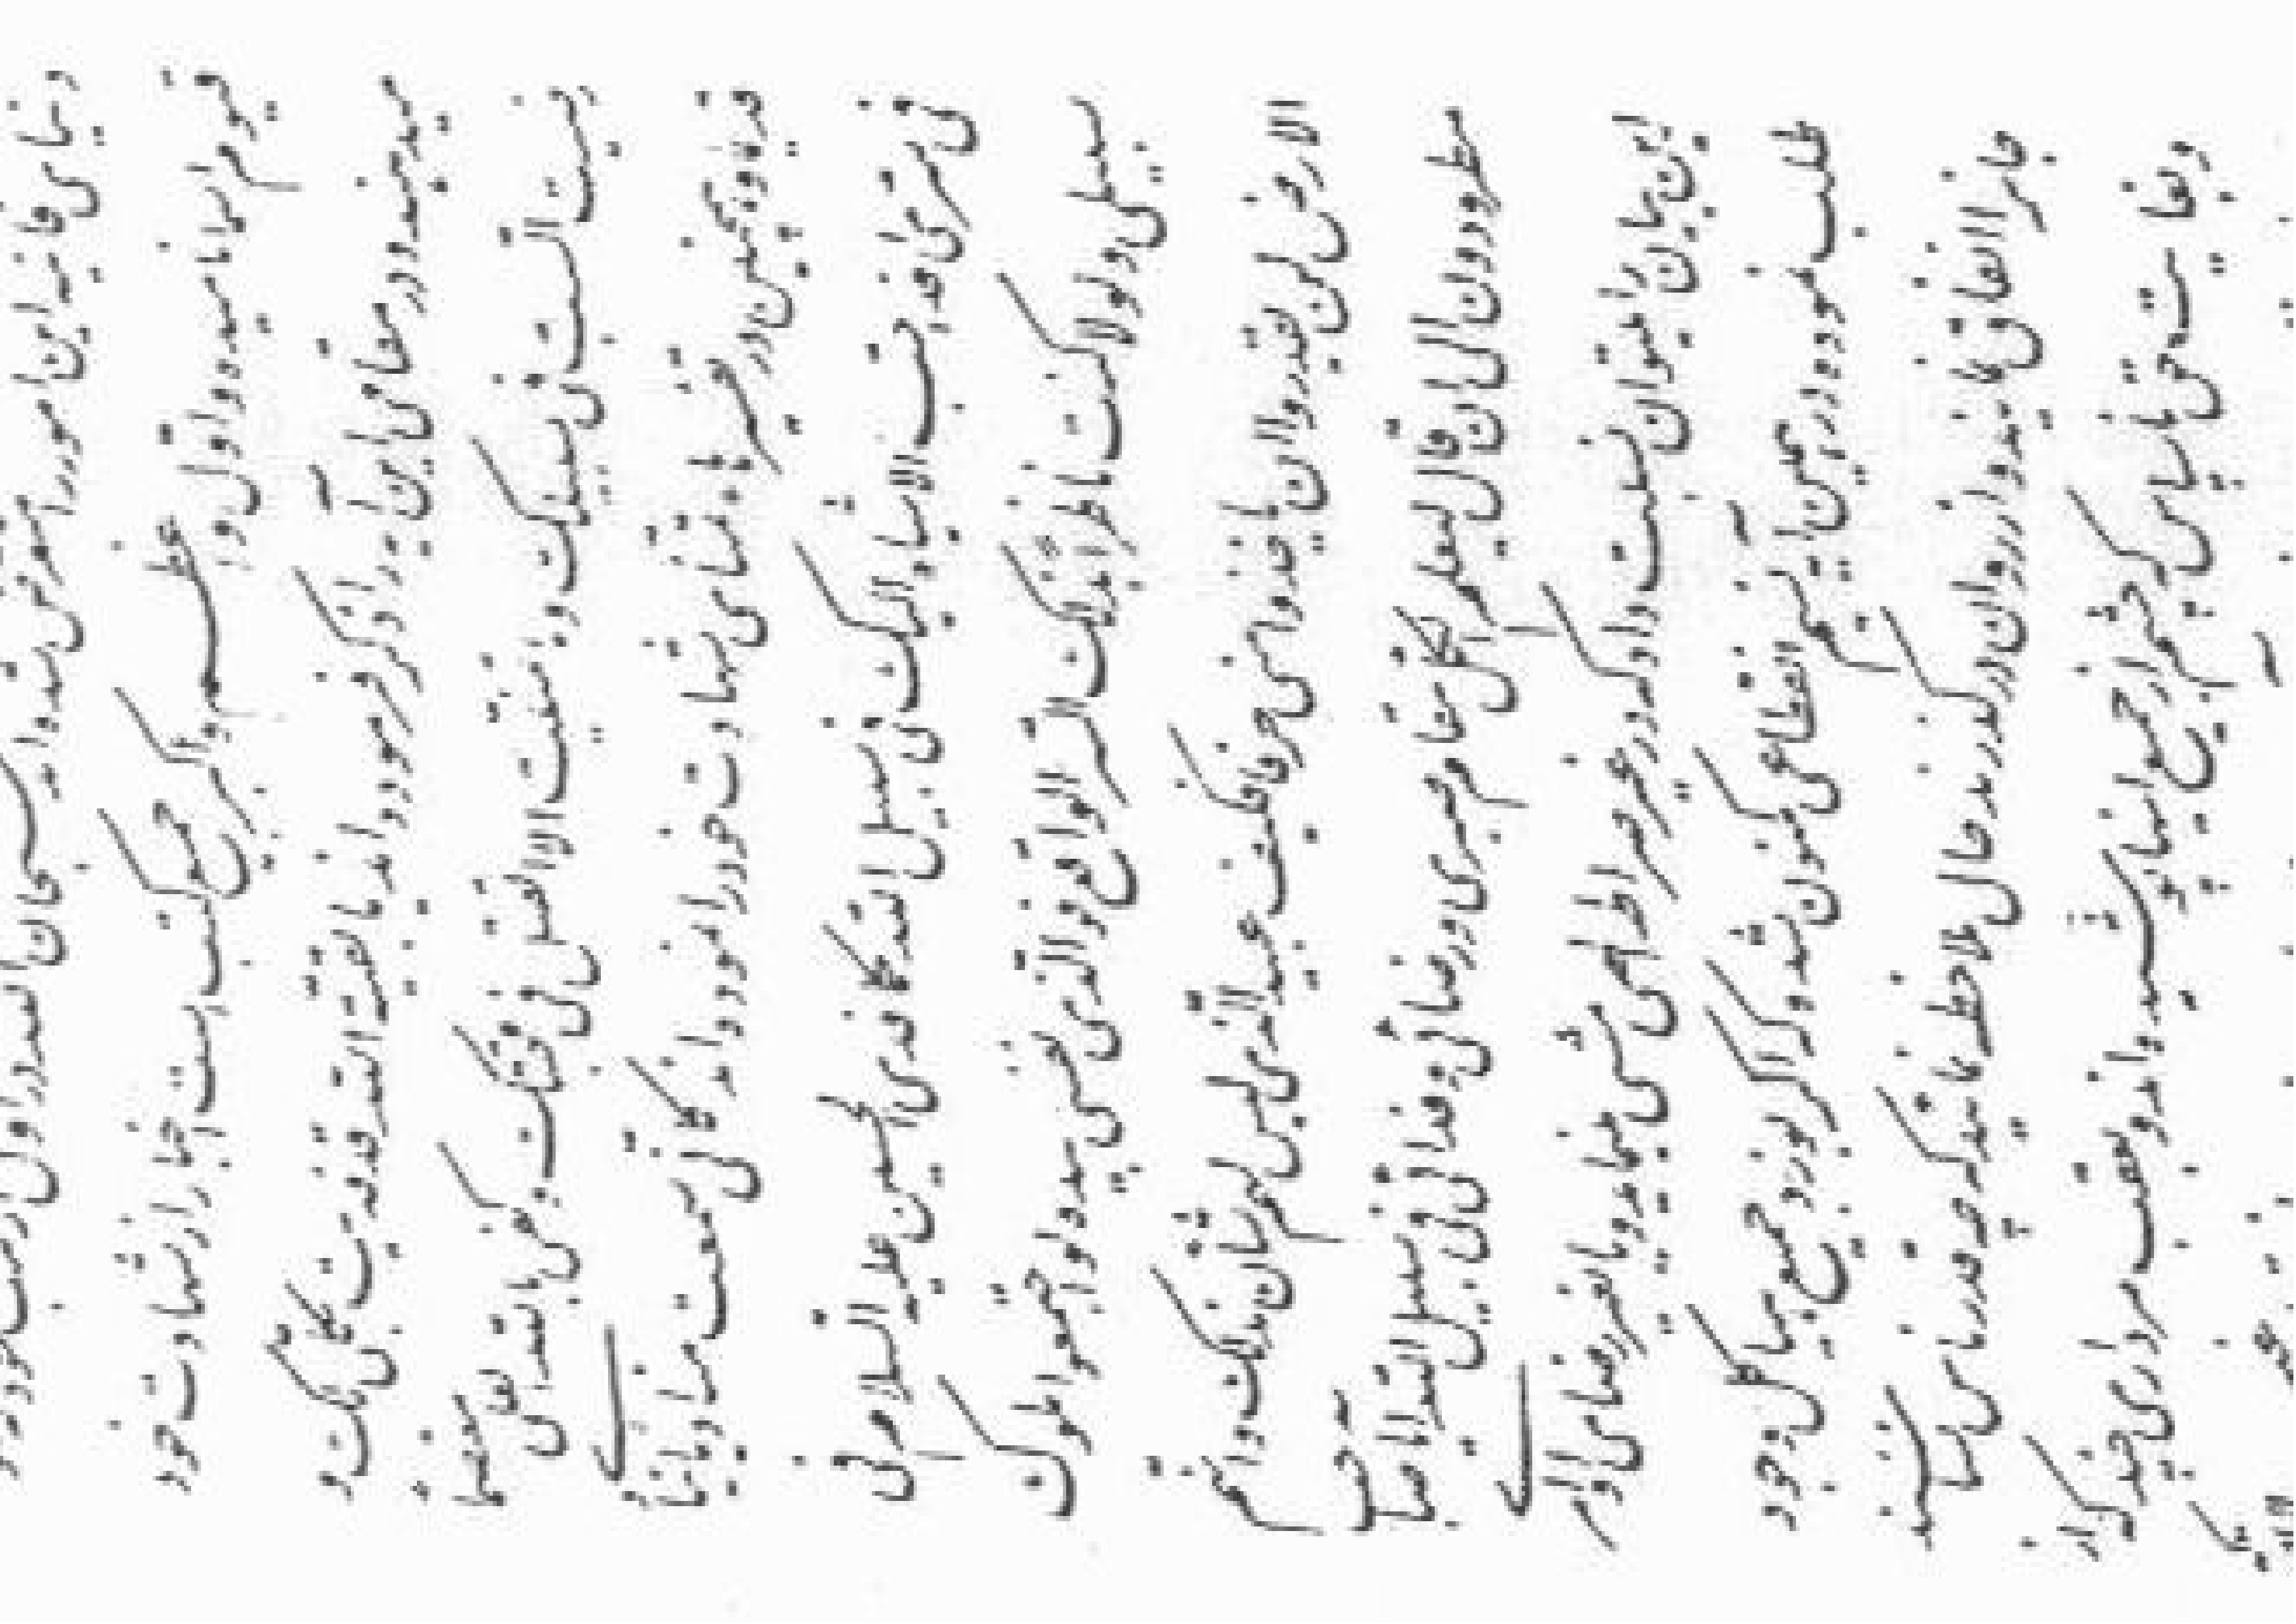 قیوم اسما نامیده و اول و اعظم و اکبر جمیع کتبست اخبار از شهادت خود
میدهند و در مقامی این آیه را ذکر فرموده‌اند یا بقیة الله قد فدیت بکلی لک و
رضیت السب فی سبیلک و ما تمنیت الا القتل فی محبتک و کفی بالله العلی معتصما
قدیما و همچنین در تفسیر هاء تمنای شهادت خود را نموده‌اند کانی سمعت منادیا ینا
فی سری افد احب الاشیاء الیک فی سبیل الله کما فدی الحسین علیه السلام فی
سبیلی و لولا کنت ناظرا بذلک السر الواقع فوالذی نفسی بیده لو اجتمعوا ملوک
الارض لن یقدروا ان یاخذوا منی حرفا فکیف عبید الذین لیس لهم شان بذلک و انهم
مطرودون الی ان قال لیعلم الکل مقام صبری و رضائی و فدائی فی سبیل الله ایا صاحب
این بیان را میتوان نسبت داد که در غیر صراط الهی مشی نماید و یا بغیر رضای او امر
طلب نموده در همین آیه نسیم انقطاعی مکنون شده که اگر بوزد جمیع هیاکل وجود
جانرا انفاق نمایند و از روان درگذرند حال ملاحظه نمائید که چقدر ناس نسناسند
و بغایت حق ناسپاس که چشم از جمیع اینها پوشیده‌اند و عقب مرداری چند که از